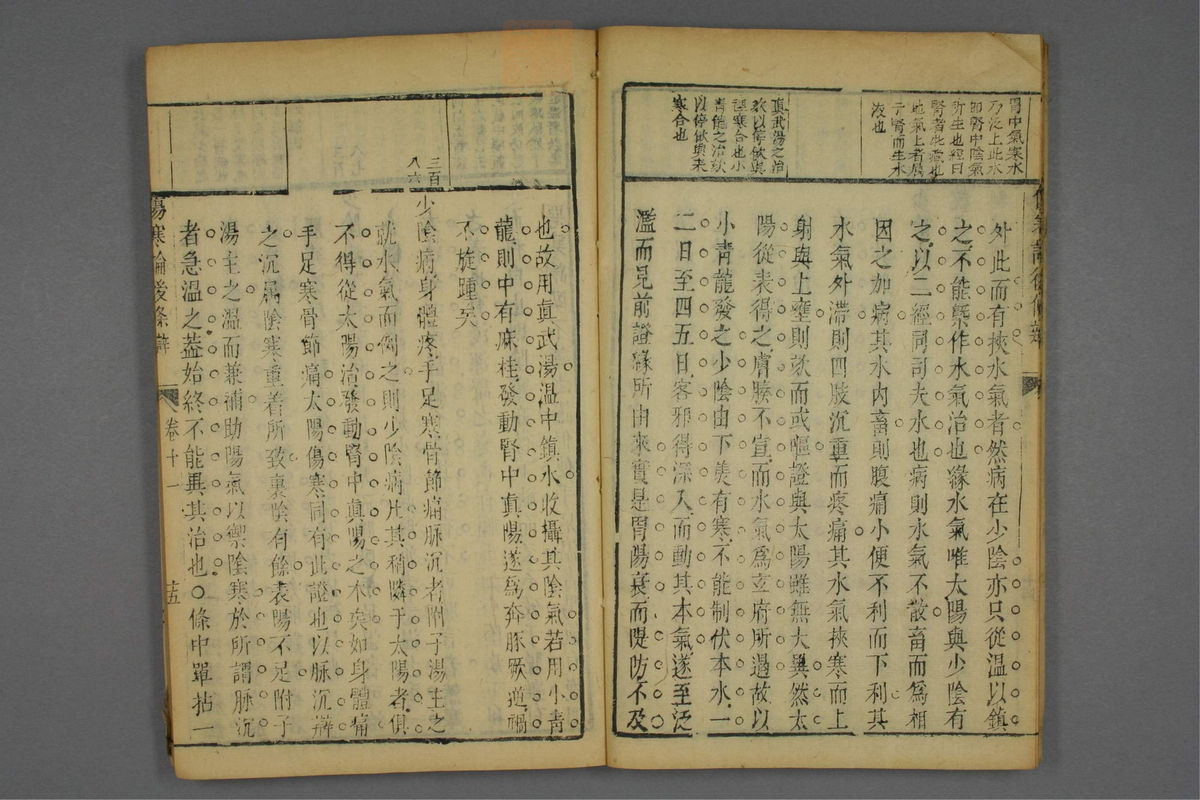 胃中氣寒水
乃泛上此水
即腎中陰氣
所生也經曰
腎者牝藏也
地氣上者屬
于腎而生水
液也
真武湯之治
欬以停飲與
裏寒合也小
青龍之治欬
以停飲與表
寒合也
外此而有挾水氣者然病在少陰亦只從溫以鎮
之不能槩作水氣治也緣水氣唯太陽與少陰有
之以二經同司夫水也病則水氣不散畜而為相
因之加病其水內畜則腹痛小便不利而下利其
水氣外滯則四肢沉重而疼痛其水氣挾寒而上
射與上壅則欬而或嘔證與太陽雖無大異然太
陽從表得之膚腠不宣而水氣為玄府所遏故以
小青龍發之少陰由下焦有寒不能制伏本水一
二日至四五日客邪得深入而動其本氣遂至泛
濫而見前證緣所由來實是胃陽衰而隄防不及
也故用真武湯溫中鎮水收攝其陰氣若用小青
龍則中有麻桂發動腎中真陽遂為奔豚厥逆禍
不旋踵矣
三百
八六
少陰病身體疼手足寒骨節痛脉沉者附子湯主之
就水氣而例之則少陰病片其稍隣于太陽者俱
不得從太陽治發動腎中真陽之本矣如身體痛
手足寒骨節痛太陽傷寒同有此證也以脉沉辨
之沉屬陰寒重着所致裏陰有餘表陽不足附子
湯主之溫而兼補助陽氣以禦陰寒於所謂脉沉
者急溫之葢始終不能異其治也○條中單拈一
傷寒論後條辨
卷十一